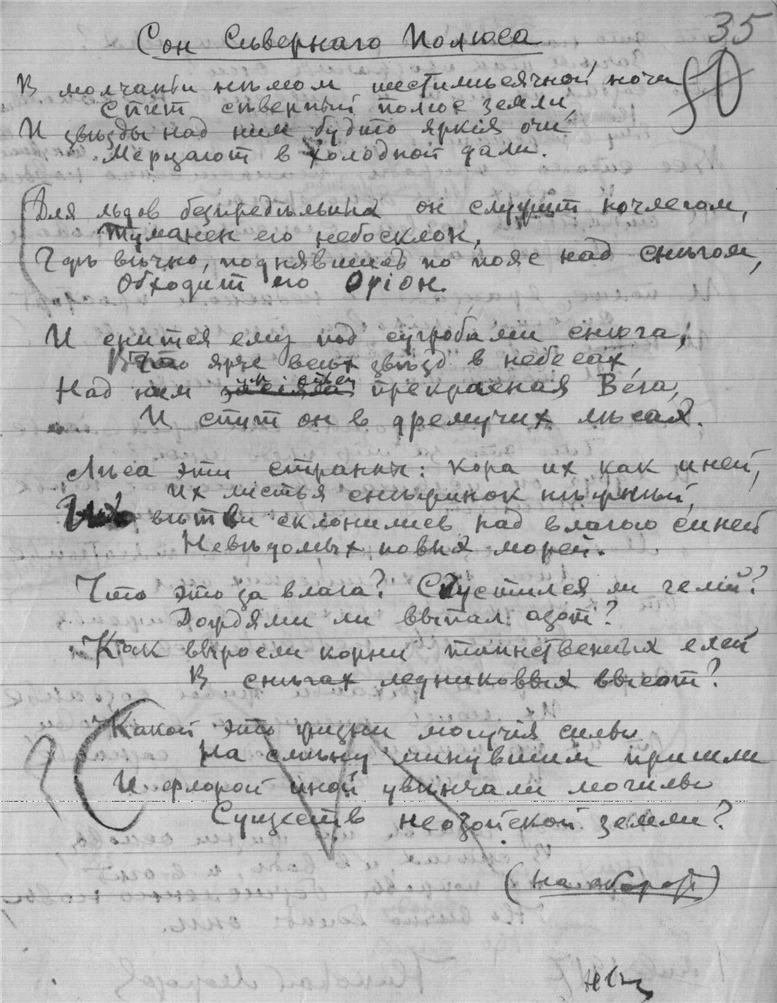 35
Сон Съвернаго Полюса
50
В молчаньи нѣмом шестимѣсячной ночи
Спит сѣверный полюс земли,
И звѣзды над ним будто яркія очи
Мерцают в холодной дали.
Для льдов безпредѣльных он служит ночлегом,
Туманен его небосклон,
Гдѣ вѣчно, поднявшись по пояс над снѣгом,
Обходит его Оріон.
И снится ему под сугробами снѣга,
Что ярче всѣх звѣзд в небесах
Над ним прекрасная Вега,
И спит он в дремучих лѣсах.
Лѣса эти странны: кора их как иней,
Их листья снѣжинок нѣжнѣй,
Их вѣтви склонились над влагою синей
Невѣдомых новых морей.
Что это за влага? Сгустился ли гелій?
Дождями ли выпал азот?
Как выросли корни таинственных елей
В снѣгах ледниковых высот?
Какой это жизни могучія силы
На смѣну минувшим пришли
И флорой иной увѣнчали могилы
Существ неозойской земли?
(На оборот)